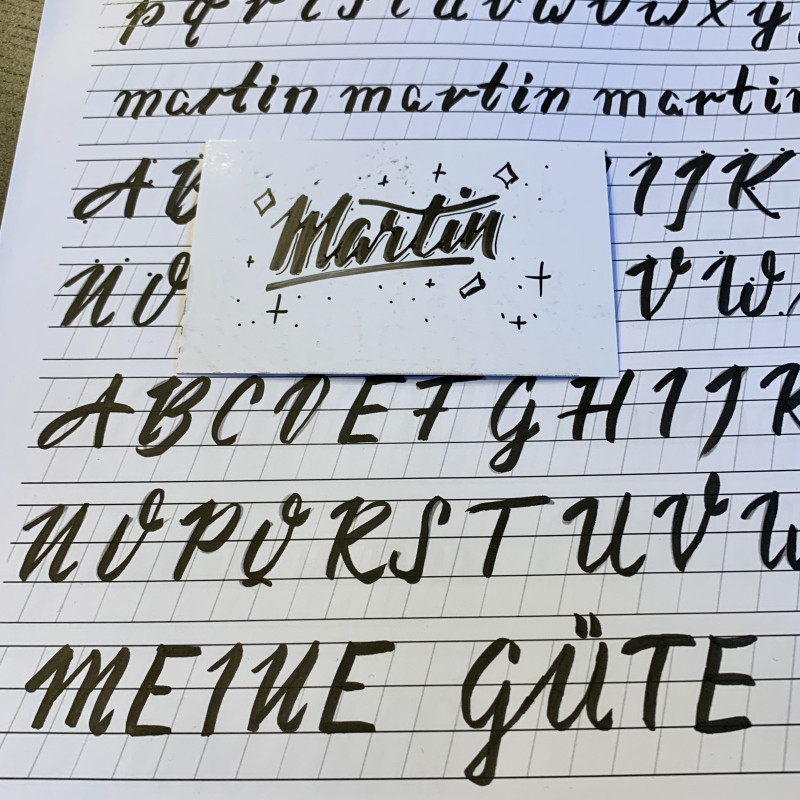 p q r t s t t u v w v w x y
martin martin martin
A B I J K
Martin
N O V W
A B C D E F G H I J K
N O P Q R S T U V W
MEINE GÜTE